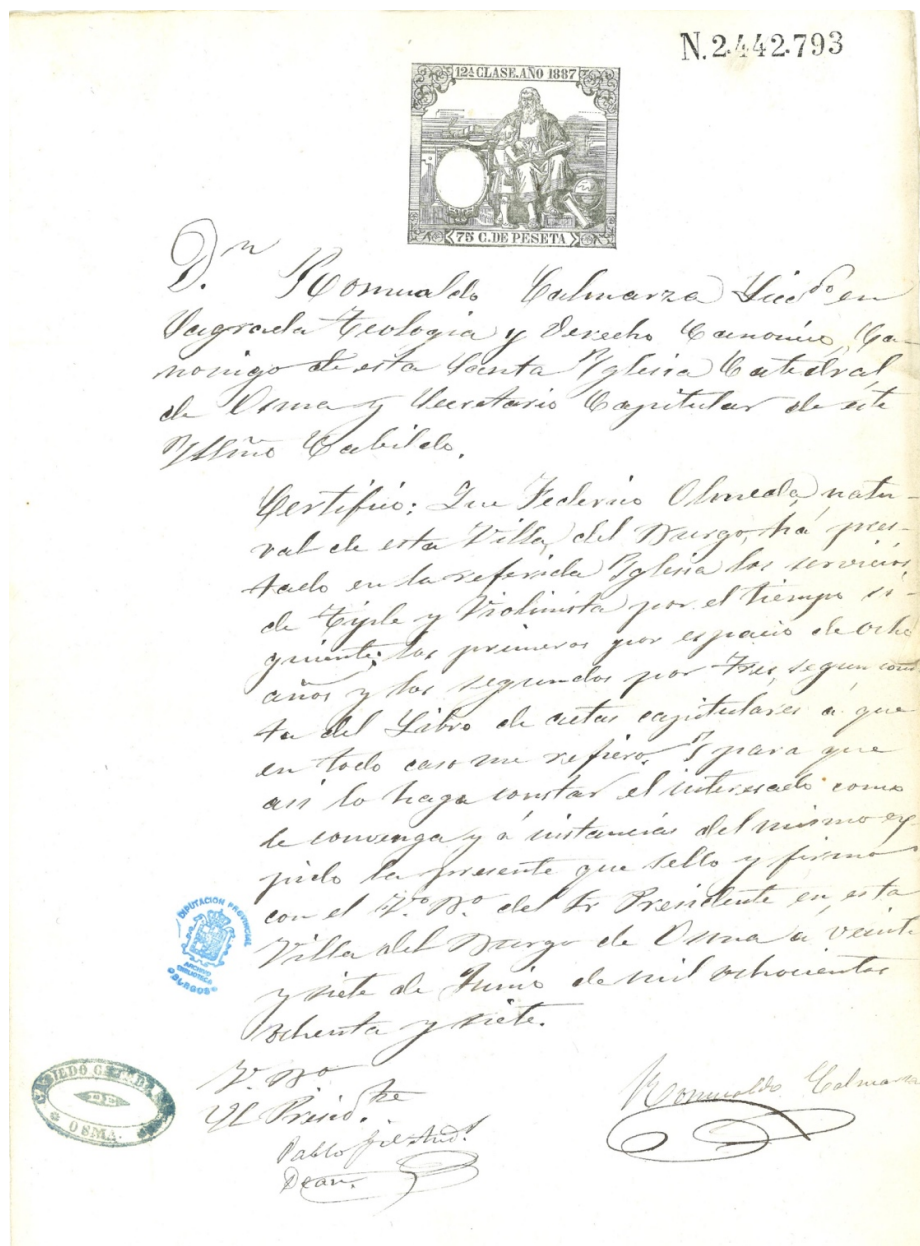 N.2.442.793
12ª CLASE. AÑO 1887
75 C. DE PESETA
D.n Romualdo Calmarza Licdo en
Sagrada Teologia y Derecho Canonico, Ca-
nonigo de esta Santa Yglesia Catedral
de Osma y Secretario Capitular de este
Yllmo Cabildo.
Certifico: Que Federico Olmeda, natu-
ral de esta Villa, del Burgo, há pres-
tado en la referida Yglesia los servicios
de Tiple y Violinista por el tiempo si-
guiente: los primeros por espacio de ocho
años y los segundos por tres, segun cons
ta del Libro de actas capitulares á que
en todo caso me refiero. Y para que
asi lo haga constar el interesado como
le convenga y á instancias del mismo ex-
pido la presente que sello y firmo
con el V.o B.o del Sr Presidente en esta
Villa del Burgo de Osma a veinte
y siete de Junio de mil ochocientos
ochenta y siete.
DIPUTACION PROVINCIAL
ARCHIVO
BIBLIOTECA
BURGOS
V.o B.o
El Presid.te
Pablo Gil
Dean.
Romualdo Calmarza
OSMA